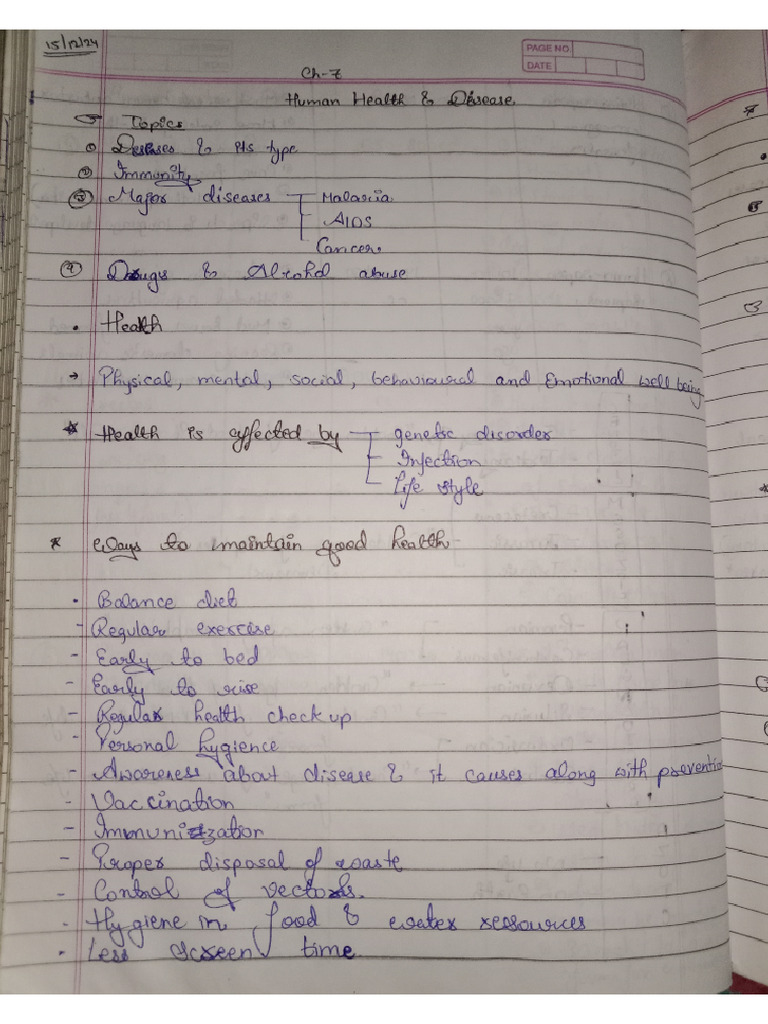 15/12/24
PAGE NO.
DATE
Ch-7
Human Health & Disease.
Topics
① Diseases & its type
② Immunity
③ Major diseases Malaria
AIDS
Cancer
④ Drugs & Alcohol abuse
• Health
→ Physical, mental, social, behavioural and Emotional well being
* Health is effected by genetic disorder
Infection
Life style
* Ways to maintain good health
• Balance diet
- Regular exercise
- Early to bed
- Early to rise
- Regular health check up
- Personal hygience
- Awareness about disease & it causes along with preventio
- Vaccination
- Immunization
- Proper disposal of waste
- Control of vectors.
- Hygiene in food & water resources
• Less screen time